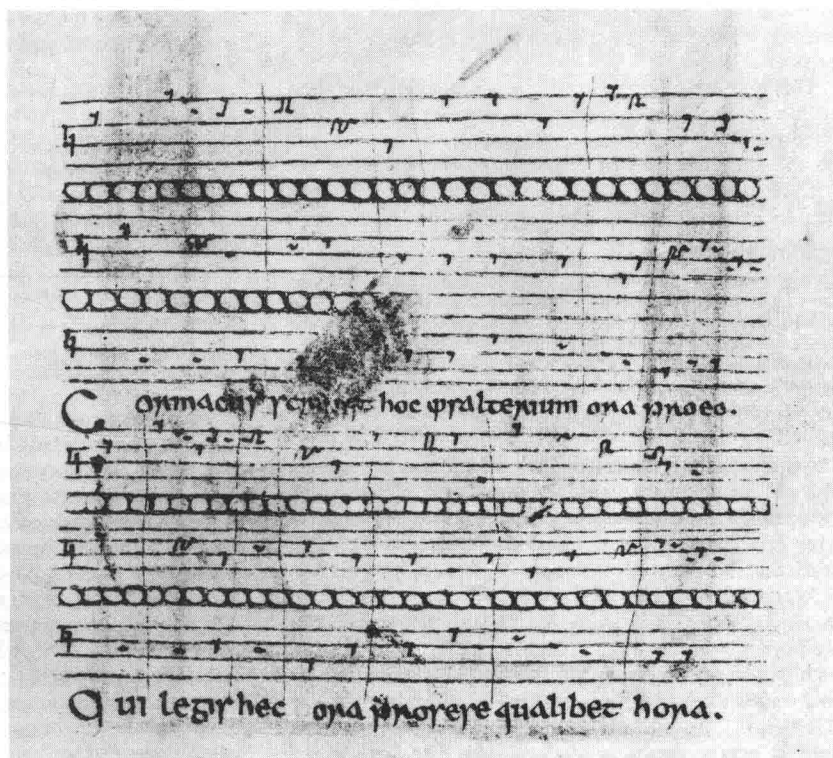 Cormacus scripsit hoc psalterium ora pro eo.
Qui legis hec ora pro sese qualibet hora.